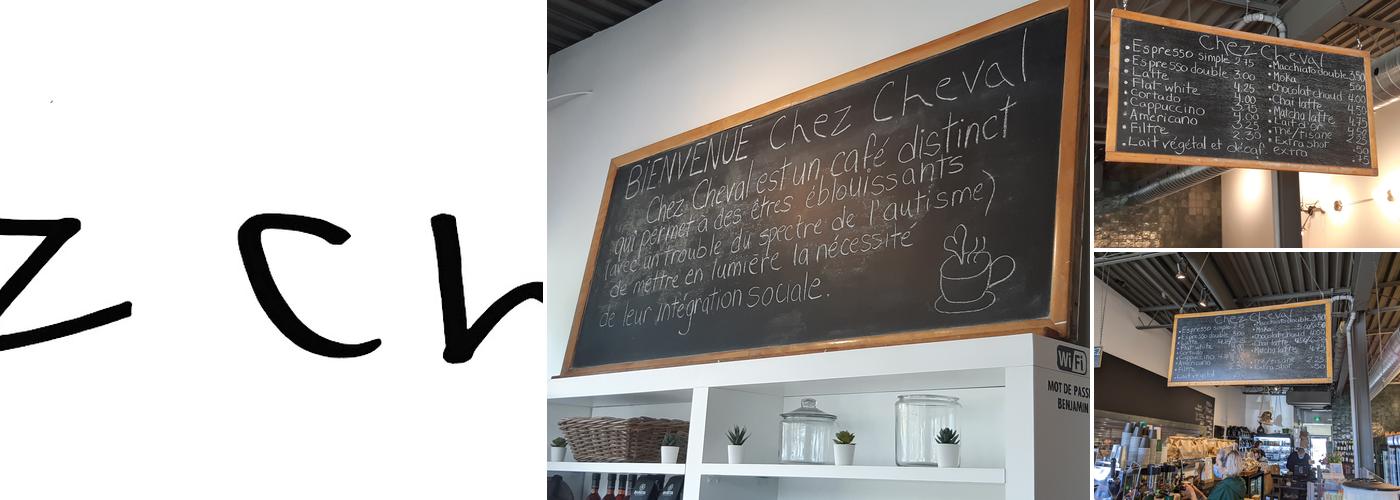 z ch
BIENVENUE Chez Cheval
Chez Cheval est un café distinct
qui permet à des êtres éblouissants
(avec un trouble du spectre de l'autisme)
de mettre en lumière la nécessité
de leur intégration sociale.
WiFi
MOT DE PASS
BENJAMIN
Chez Cheval
• Espresso simple 2.75
• Espresso double 3.00
• Latte 4.25
• Flat white 4.00
• Cortado 3.75
• Cappuccino 4.00
• Americano 3.25
• Filtre 2.30
• Lait végétal et décaf. extra .75
• Macchiato double 3.50
• Moka 5.00
• Chocolat chaud 4.00
• Chai latte 4.50
• Matcha latte 4.75
• Lait d'or
• Thé/tisane
• Extra shot .50
Chez Cheval
• Espresso simple
• Espresso double 3.00
• Latte
• Flat white
• Cortado
• Cappuccino
• Americano
• Filtre
• Lait végétal
• Macchiato double
• Moka
• Chocolat chaud
• Chai latte
• Matcha latte
• Thé/tisane
• Extra shot .50